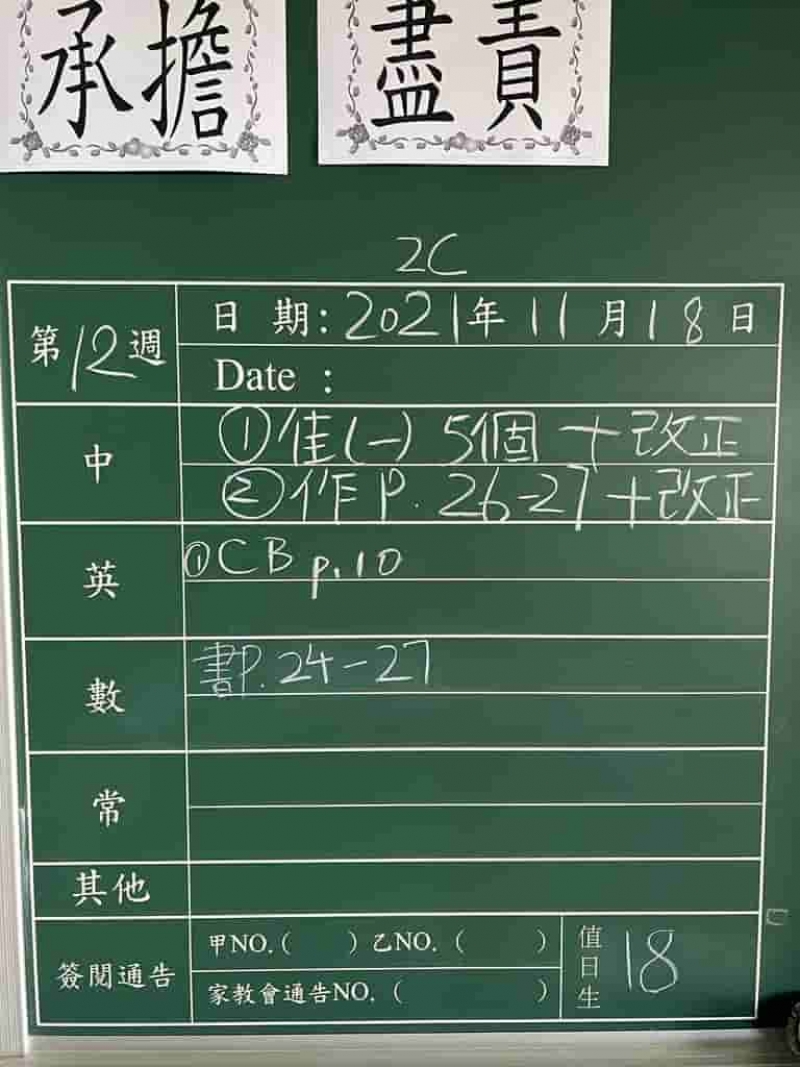 承擔 盡責
2C
第12週
日期：2021年11月18日
Date :
中
①佳(一) 5個 + 改正
②作P. 26-27 + 改正
英
①CB p.10
數
書P. 24-27
常
其他
簽閱通告
甲NO.( ) 乙NO. ( )
家教會通告NO. ( )
值日生 18